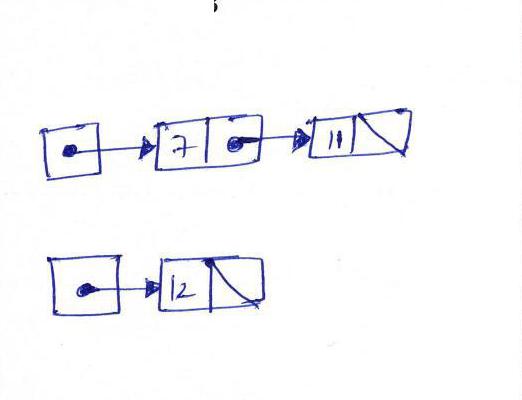 7 11
12